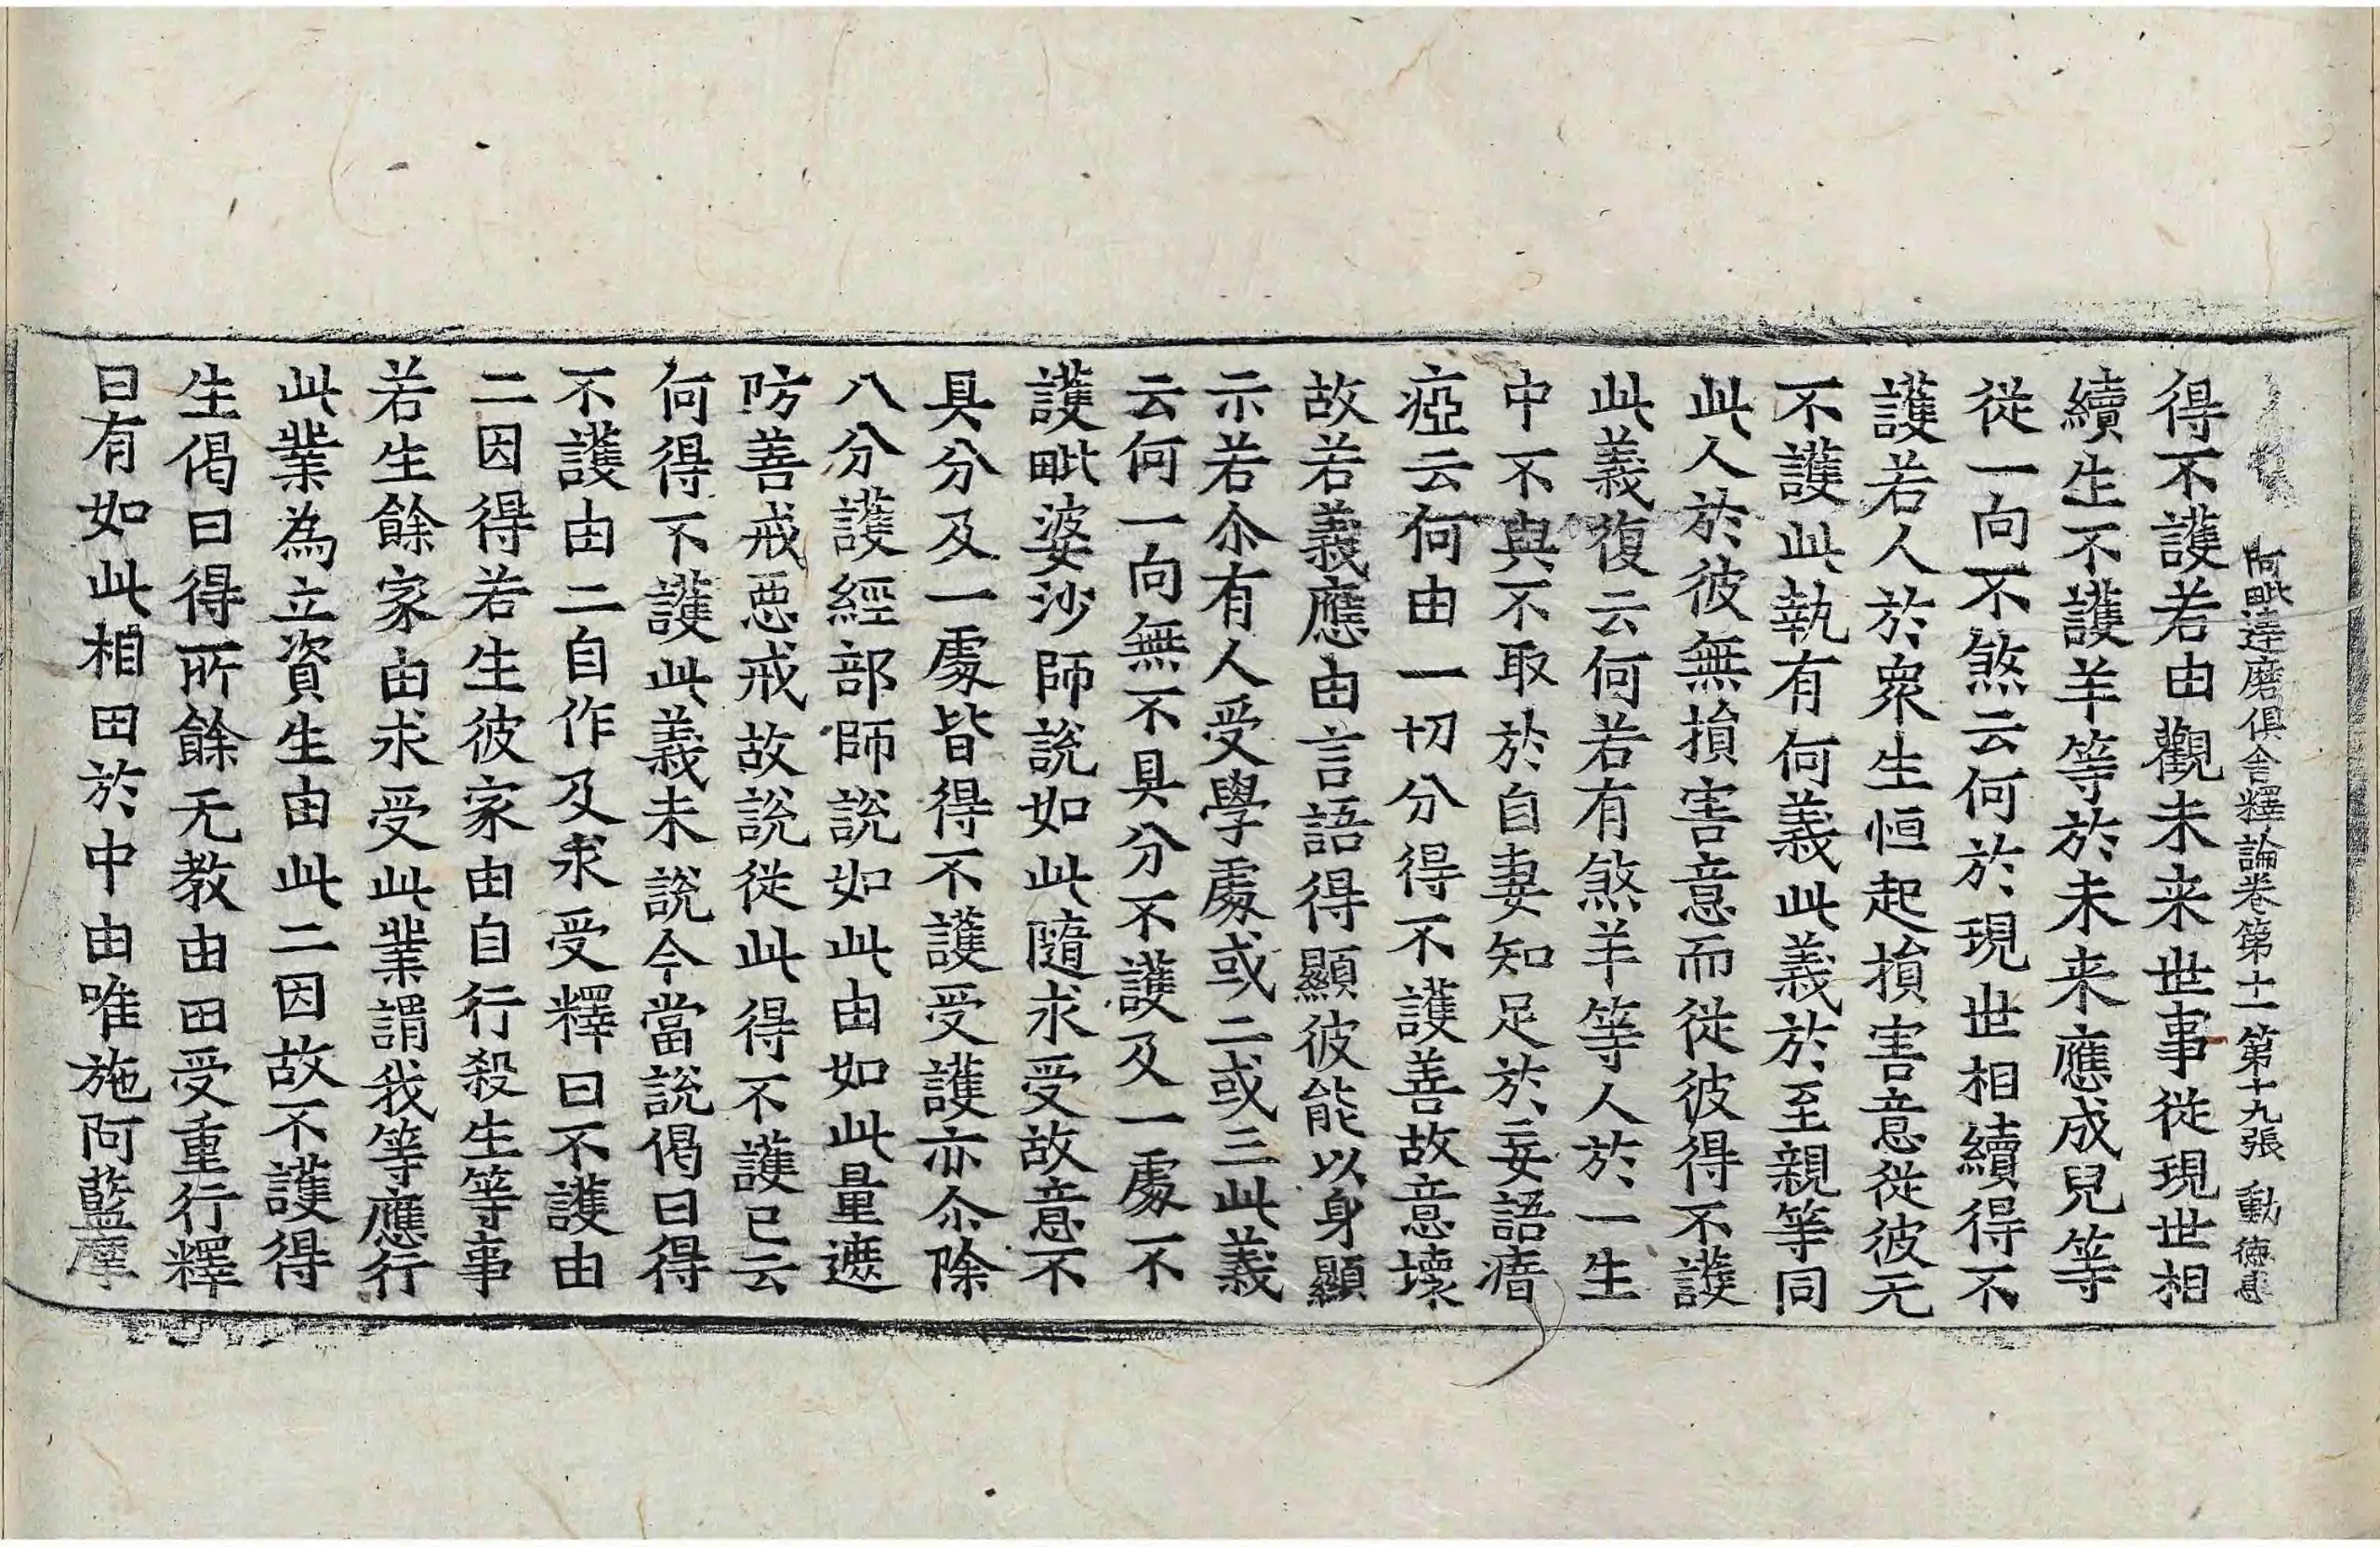 阿毗達磨俱舍釋論卷第十一 第十九張 動
得不護若由觀未来世事從現世相
續生不護羊等於未来應成兒等
從一向不煞云何於現世相續得不
護若人於衆生恒起損害意從彼无
不護此執有何義此義於至親等同
此人於彼無損害意而從彼得不護
此義復云何若有煞羊等人於一生
中不與不取於自妻知足於妄語瘖
瘂云何由一切分得不護善故意壞
故若義應由言語得顯彼能以身顯
示若尒有人受學處或二或三此義
云何一向無不具分不護及一處不
護毗婆沙師說如此隨求受故意不
具分及一處皆得不護受護亦尒除
八分護經部師說如此由如此量遮
防善戒惡戒故說從此得不護已云
何得不護此義未說今當說偈曰得
不護由二自作及求受釋曰不護由
二因得若生彼家由自行殺生等事
若生餘家由求受此業謂我等應行
此業為立資生由此二因故不護得
生偈曰得所餘无教由田受重行釋
曰有如此相田於中由唯施阿藍摩